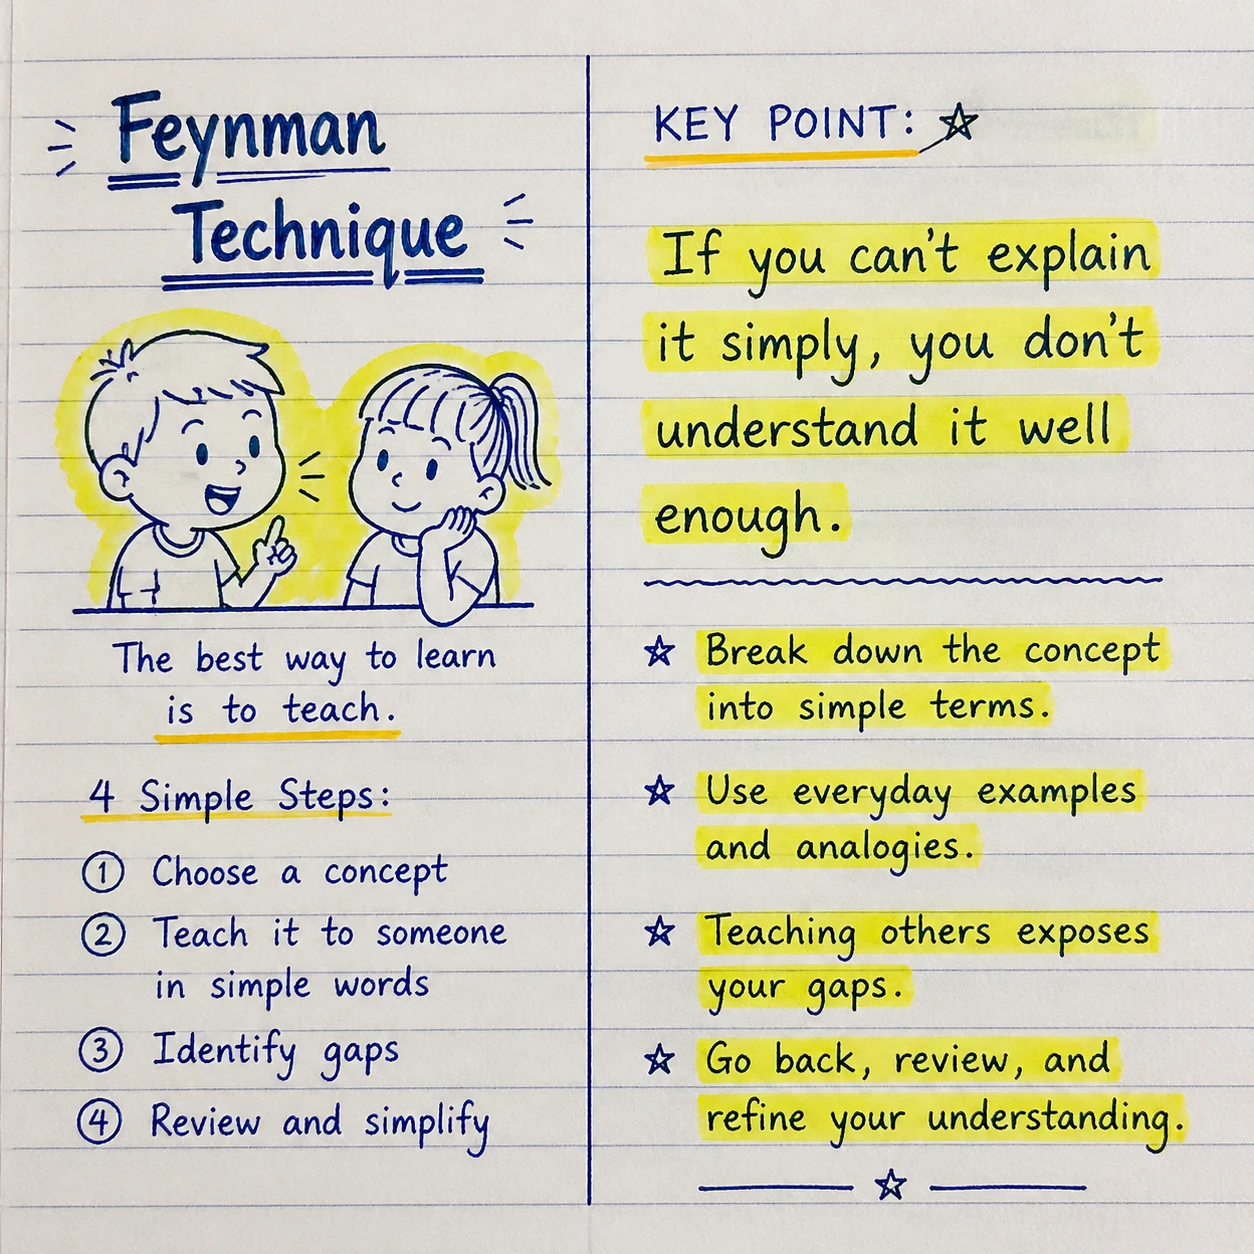 Feynman
Technique
The best way to learn
is to teach.
4 Simple Steps:
1 Choose a concept
2 Teach it to someone
in simple words
3 Identify gaps
4 Review and simplify
KEY POINT:
If you can't explain
it simply, you don't
understand it well
enough.
Break down the concept
into simple terms.
Use everyday examples
and analogies.
Teaching others exposes
your gaps.
Go back, review, and
refine your understanding.